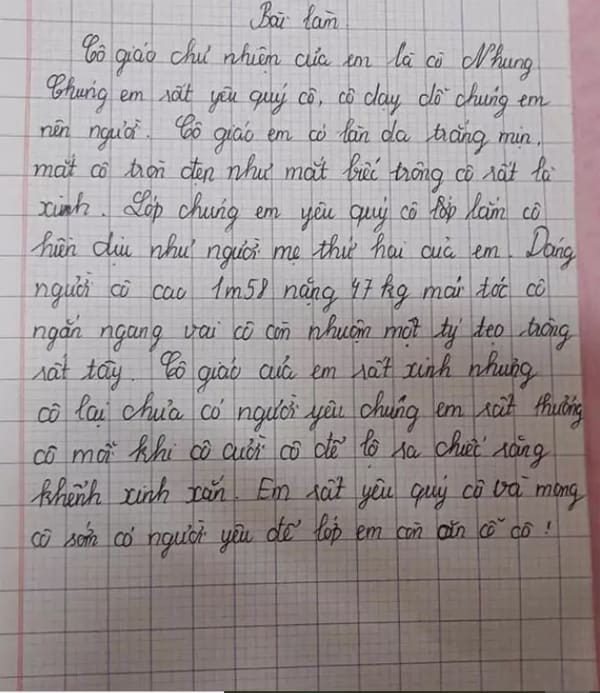 Bài làm
Cô giáo chủ nhiệm của em là cô Nhung
Chúng em rất yêu quý cô, cô dạy dỗ chúng em
nên người. Cô giáo em có làn da trắng mịn,
mắt cô tròn đẹn như mắt biếc trông cô rất là
xinh. Lớp chúng em yêu quý cô lắm cô
hiền dịu như người mẹ thứ hai của em. Dáng
người cô cao 1m58 nặng 47 kg mái tóc cô
ngắn ngang vai cô còn nhuộm một tý tẹo trông
rất tây. Cô giáo của em rất xinh nhưng
cô lại chưa có người yêu chúng em rất thương
cô mỗi khi cô cười cô để lộ ra chiếc răng
khểnh xinh xắn. Em rất yêu quý cô và mong
cô sớm có người yêu để lớp em còn ăn cỗ cô!